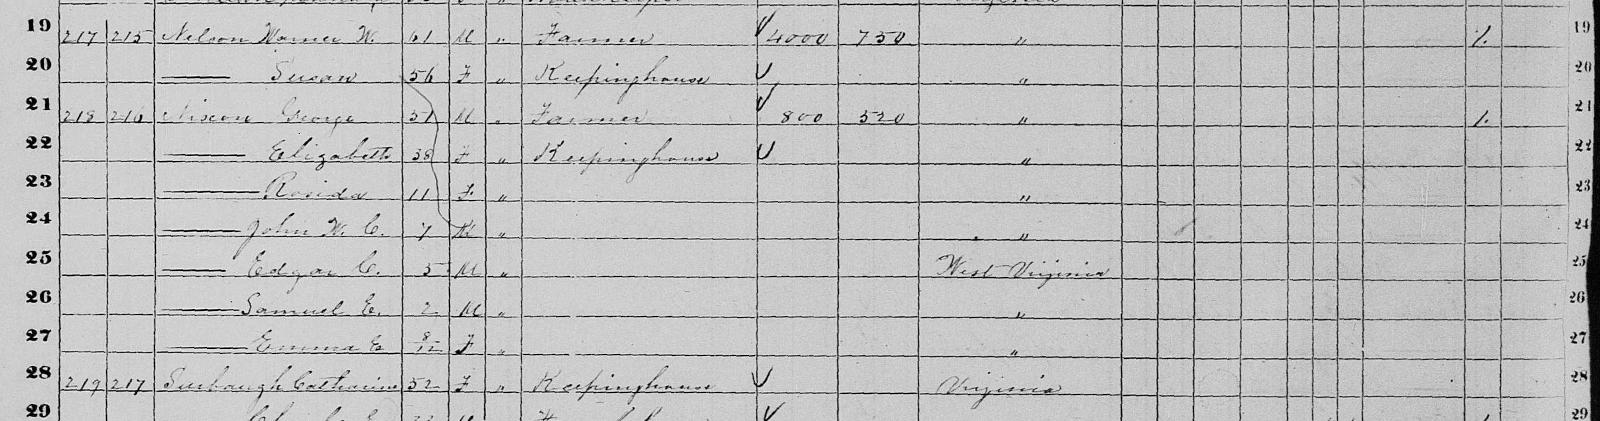 19 217 215 Nelson Warner W. 61 M " Farmer 4000 750 " 1. 19
20 —— Susan 56 F " Keepinghouse " 20
21 218 216 Nixon George 37 M " Farmer 800 520 " 1. 21
22 —— Elizabeth 38 F " Keepinghouse " 22
23 —— Rosida 11 F " " 23
24 —— John W. C. 7 M " " 24
25 —— Edgar C. 5 M " West Virginia 25
26 —— Samuel E. 2 M " " 26
27 —— Emma E 8/12 F " " 27
28 219 217 Surbaugh Catharine 52 F " Keepinghouse Virginia 28
29 29